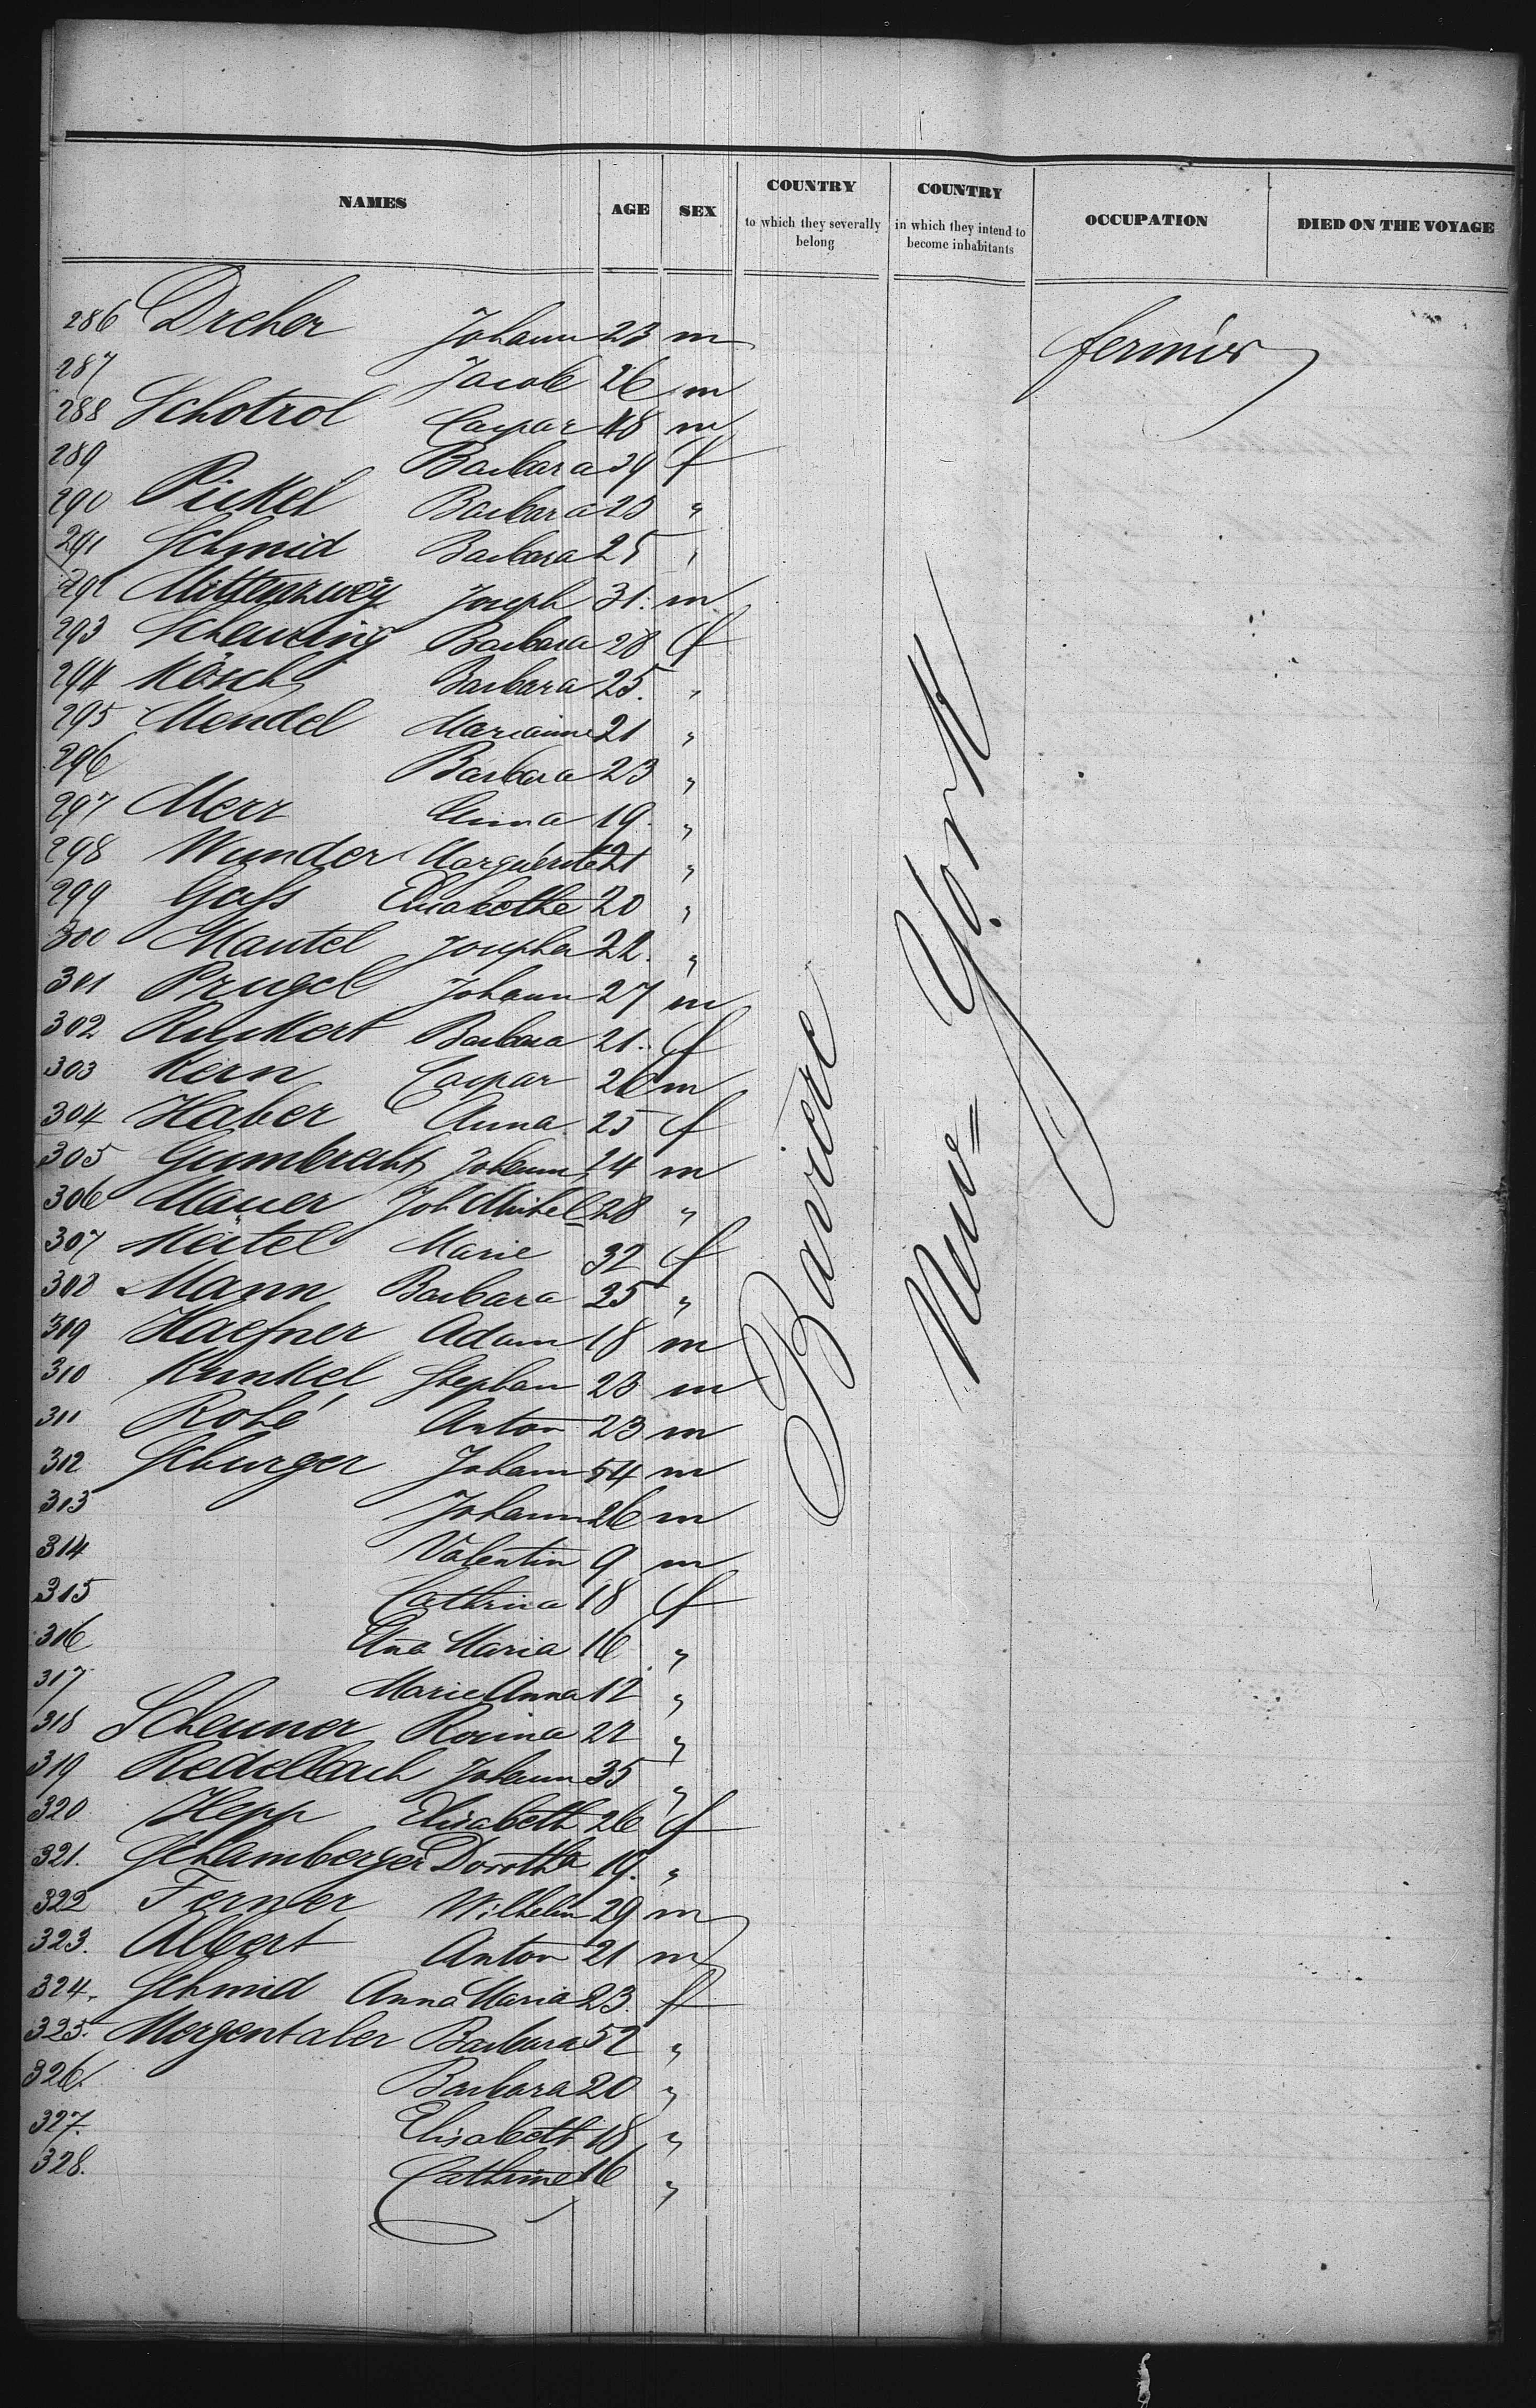 NAMES AGE SEX COUNTRY to which they severally belong COUNTRY in which they intend to become inhabitants OCCUPATION DIED ON THE VOYAGE
286 Dreher Johann 23 m fermier
287 Jacob 26 m
288 Schotrol Caspar 48 m
289 Barbara 39 f
290 Pickel Barbara 25 "
291 Schmid Barbara 25 "
292 Mittenzweÿ Joseph 31 m
293 Scheuring Barbara 28 f
294 Kösch Barbara 25 "
295 Mendel Marianne 21 "
296 Barbara 23 "
297 Merz Anna 19 "
298 Wunder Marguerite 21 "
299 Gass Elisabethe 20 "
300 Mantel Josepha 22 "
301 Prugel Johann 27 m
302 Ruckert Barbara 21 f
303 Kern Caspar 26 m
304 Haber Anna 25 f
305 Gumbracht Johann 24 m
306 Mauer Joh Michel 28 "
307 Meitel Marie 32 f
308 Mann Barbara 25 "
309 Haefner Adam 18 m
310 Kunkel Stephan 23 m
311 Rohé Anton 23 m
312 Schurger Johann 54 m
313 Johann 26 m
314 Valentin 9 m
315 Cathrina 18 f
316 Aña Maria 16 "
317 Marie Anna 12 "
318 Scheuner Rosina 22 "
319 Redelbach Johann 35 "
320 Hepp Elisabeth 26 f
321. Schamberger Doroth<sup>a</sup> 19. "
322 Ferner Wilhelm 29 m
323. Albert Anton 21 m
324. Schmid Anna Maria 23 f
325. Morgentaler Barbara 52 "
326. Barbara 20 "
327. Elisabeth 18 "
328. Cathrine 16 "
Bavière
New=York